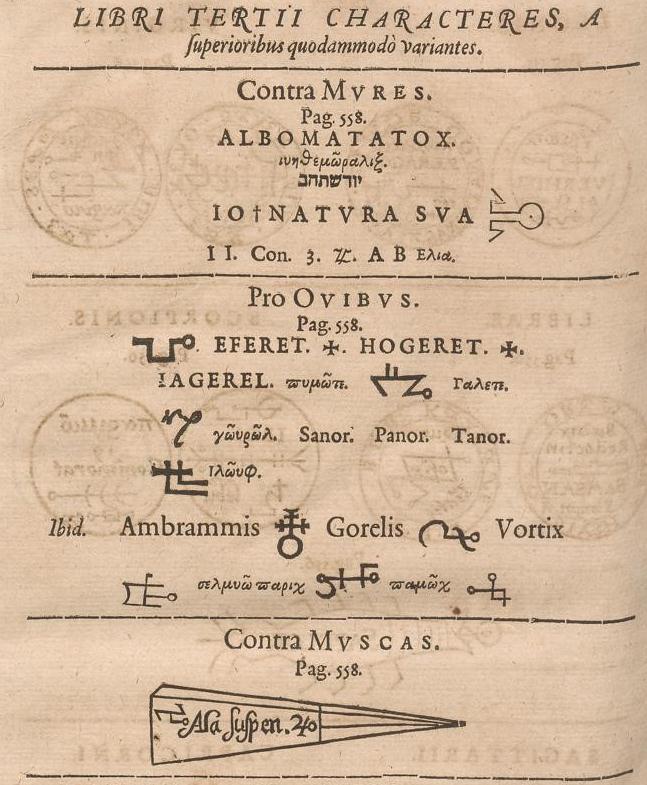 LIBRI TERTII CHARACTERES, A
superioribus quodammodò variantes.
Contra MVRES.
Pag. 558.
ALBOMATATOX.
ιυηθεμῶραλιξ.
יודשתהב
IO†NATVRA SVA
II. Con. 3. A B Ελια.
Pro OVIBVS.
Pag. 558.
EFERET. ✠. HOGERET. ✠.
IAGEREL. ϖυμῶτε. Γαλεπε.
γῶυρῶλ. Sanor. Panor. Tanor.
Ιλῶυφ.
Ibid. Ambrammis Gorelis Vortix
σελμυῶ ϖαριχ ϖαμῶχ
Contra MVSCAS.
Pag. 558.
Asa suspen.